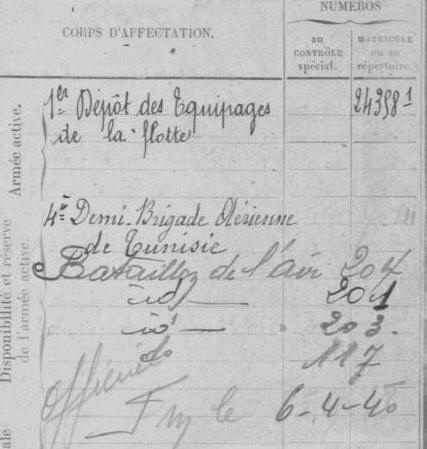 NUMÉROS
CORPS D'AFFECTATION.
au CONTRÔLE spécial.
MATRICULE ou au répertoire.
Armée active.
1er Dépôt des Equipages 24358 1
de la flotte
Disponibilité et réserve de l'armée active.
4e Demi-Brigade Aérienne
de Tunisie
Bataillon de l'air 204
id 201
id 203.
do 117
le 6-4-40